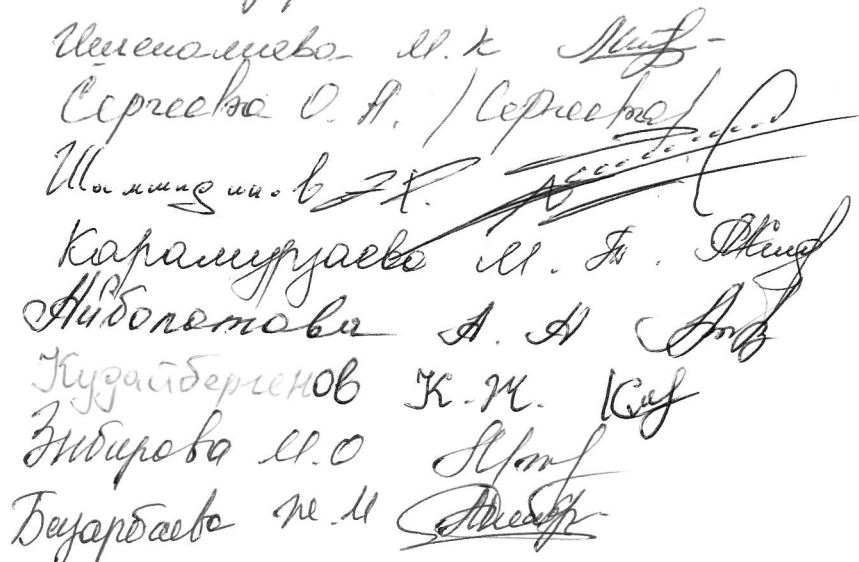 Ишеналиева М.К
Сергеева О.А. /Сергеева/
Шамшидинов Э.Р.
Карамурзаева М.Т.
Айболотова А.А
Кудайбергенов К.Ж.
Эмбирова М.О
Базарбаева Ж.М